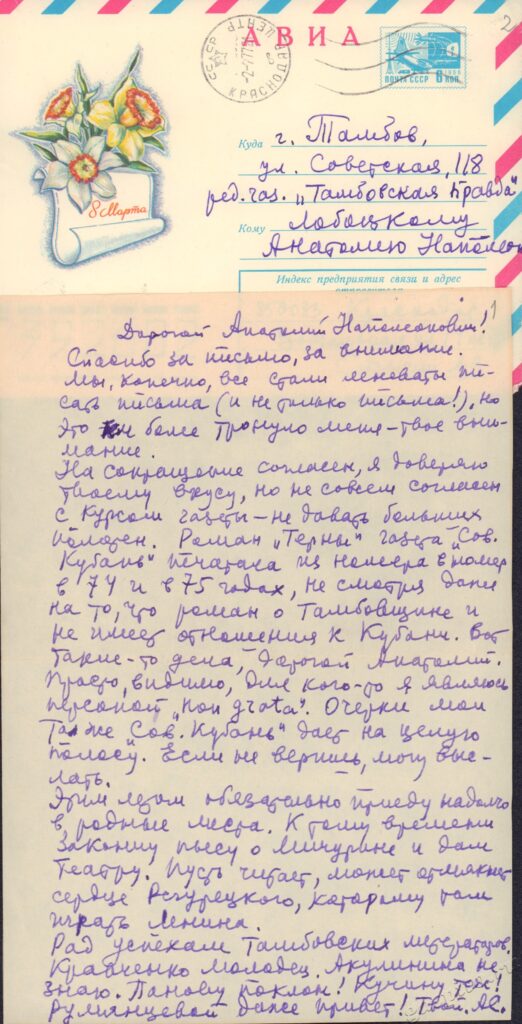 2
АВИА
СССР КРАСНОДАР ПОЧТАМТ
ПОЧТА СССР 6 КОП.
8 Марта
Куда г. Тамбов,
ул. Советская, 118
ред. газ. „Тамбовская Правда"
Кому Лобоцкому
Анатолию Наполеон
Индекс предприятия связи и адрес
отправителя
1
Дорогой Анатолий Наполеонович!
Спасибо за письмо, за внимание.
Мы, конечно, все стали леноваты пи-
сать письма (и не только письма!), но
это более тронуло меня – твое вни-
мание.
На сокращение согласен, я доверяю
твоему вкусу, но не совсем согласен
с курсом газеты – не давать больших
полотен. Роман „Терны" газета „Сов.
Кубань" печатала из номера в номер
в 74 и в 75 годах, не смотря даже
на то, что роман о Тамбовщине и
не имеет отношения к Кубани. Вот
такие-то дела, дорогой Анатолий.
Просто, видимо, для кого-то я являюсь
персоной „нон grata". Очерки мои
та же „Сов. Кубань" дает на целую
полосу. Если не веришь, могу выс-
лать.
Этим летом обязательно приеду надолго
в родные места. К тому времени
закончу пьесу о Мичурине и дам
театру. Пусть читает, может отмякнет
сердце которому там
играть Ленина.
Рад успехам Тамбовских литераторов.
Кравченко молодец. Акулинина не
знаю. Панову поклон! Кучину тож!
Румянцевой даже привет! Твой Ав.